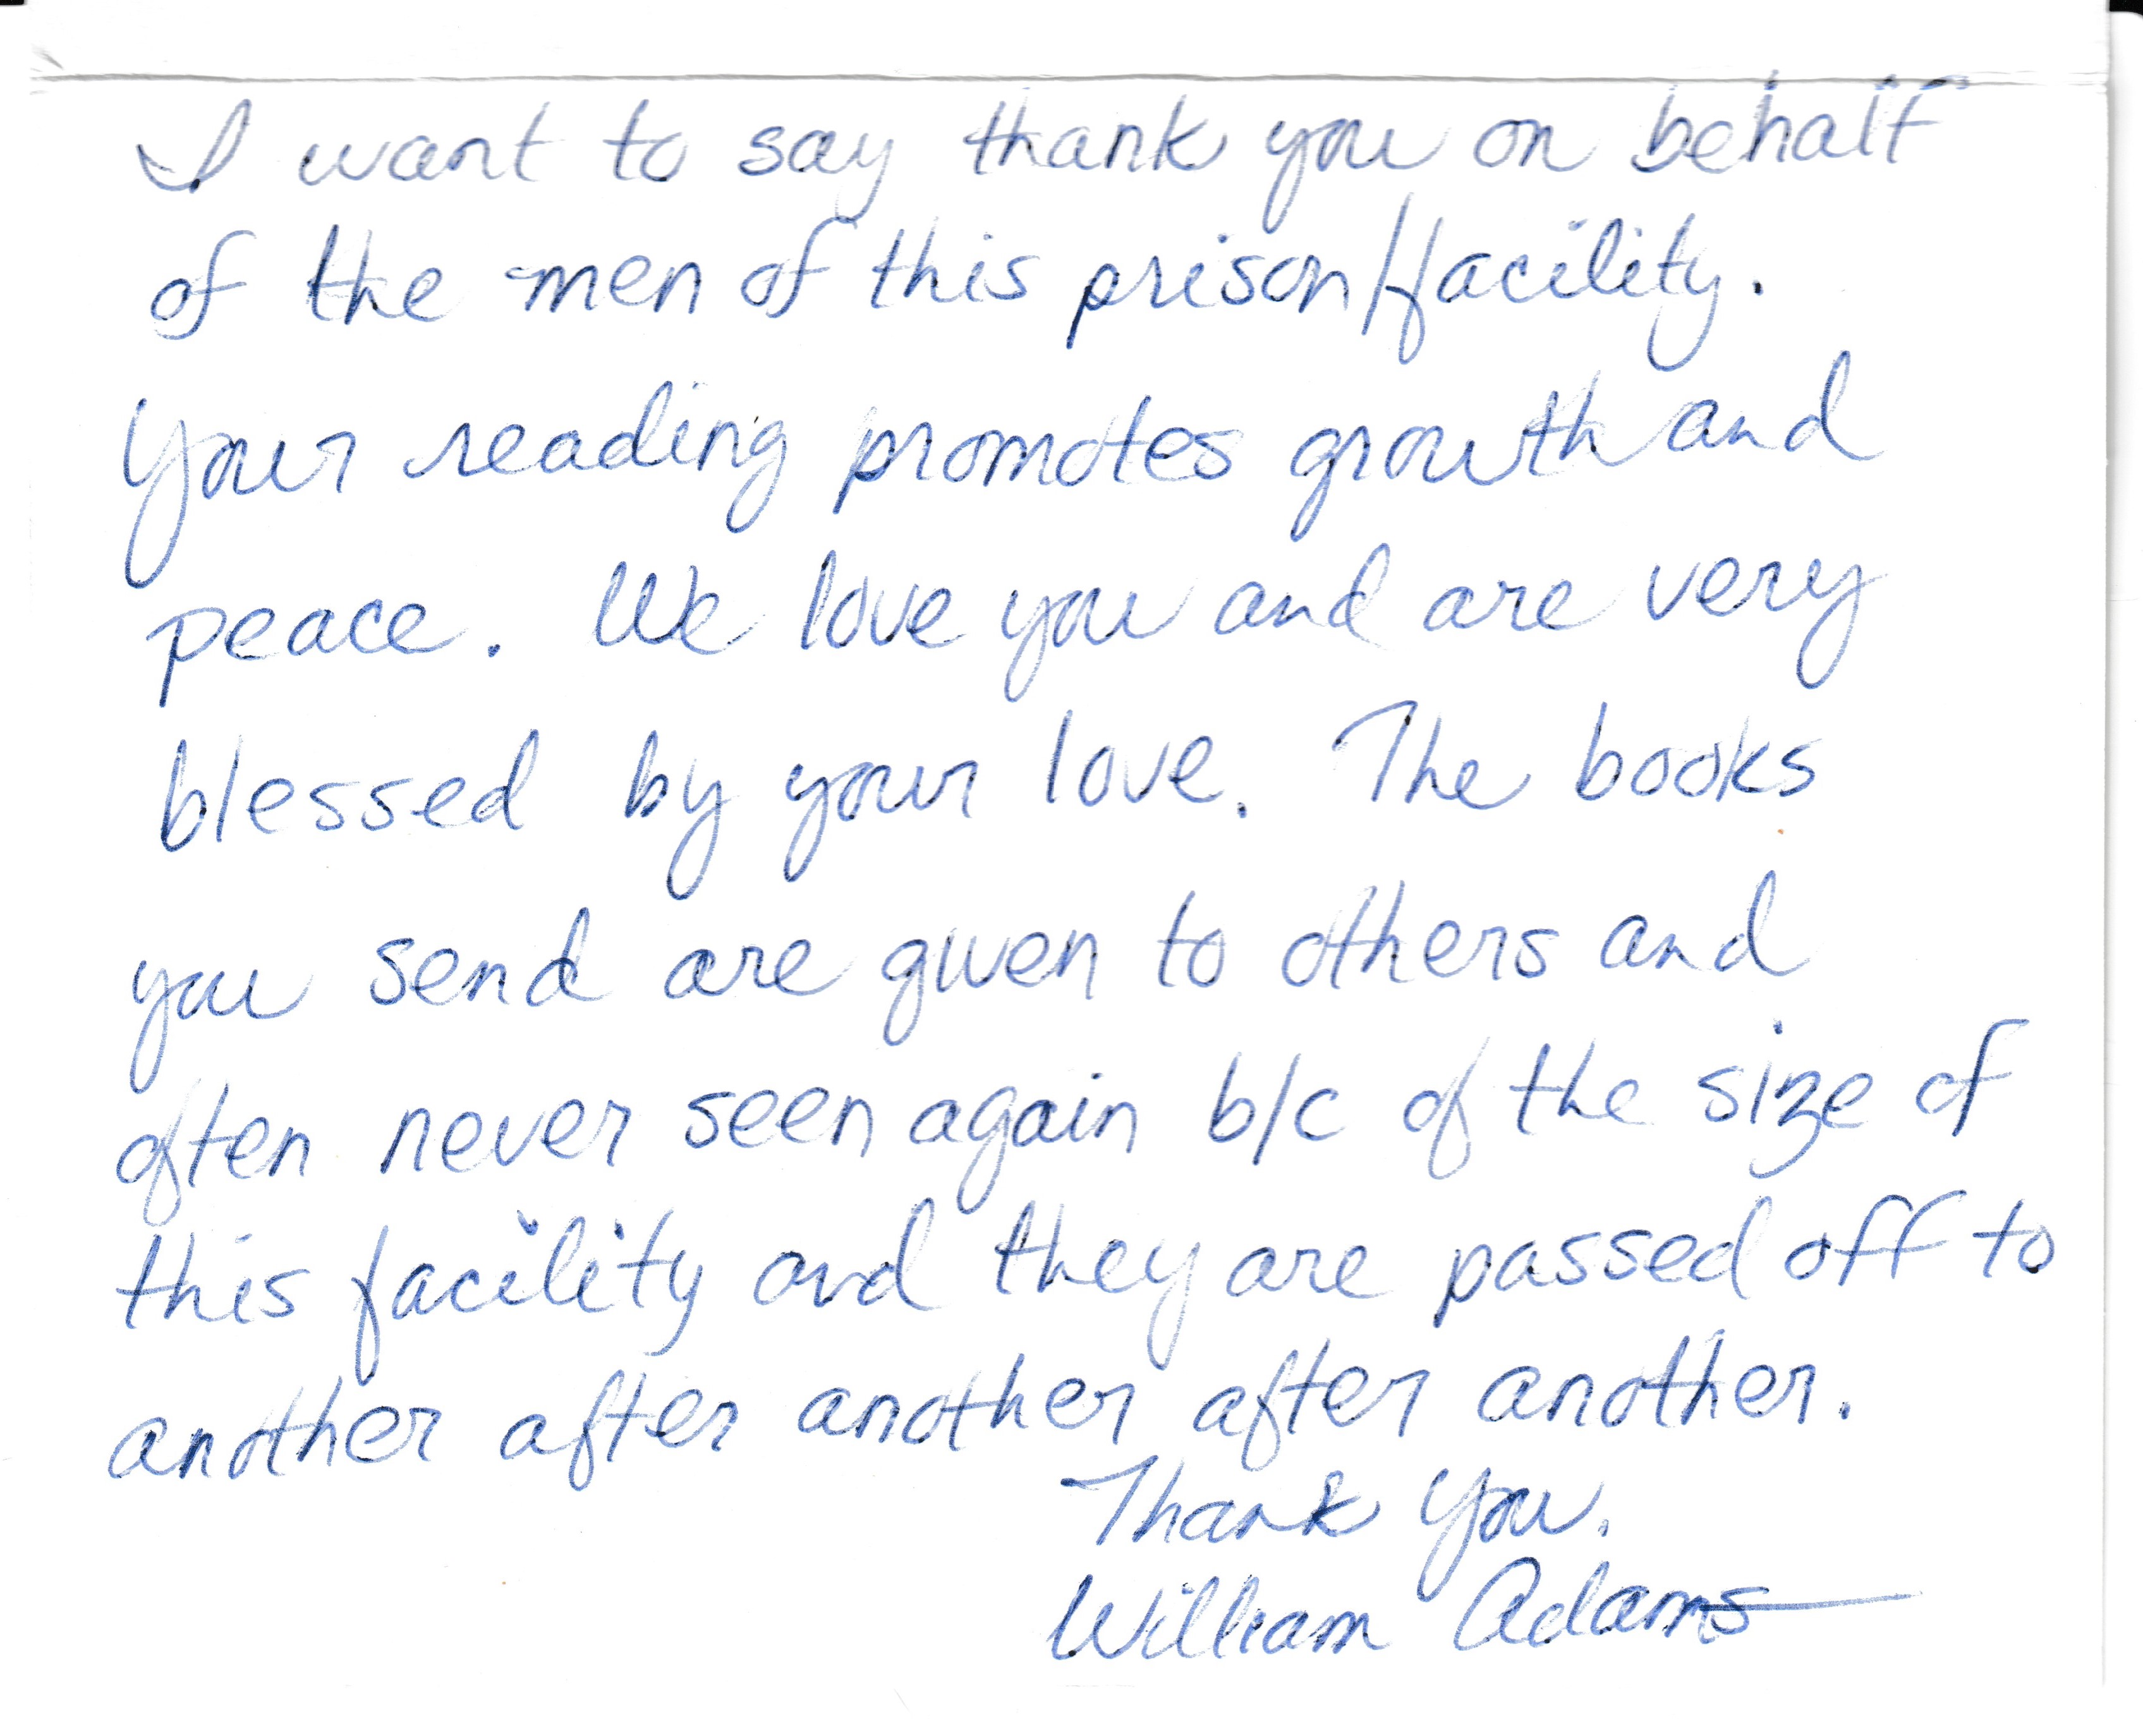 I want to say thank you on behalf
of the men of this prison/facility.
Your reading promotes growth and
peace. We love you and are very
blessed by your love. The books
you send are given to others and
often never seen again b/c of the size of
this facility and they are passed off to
another after another after another.
Thank You.
William Adams